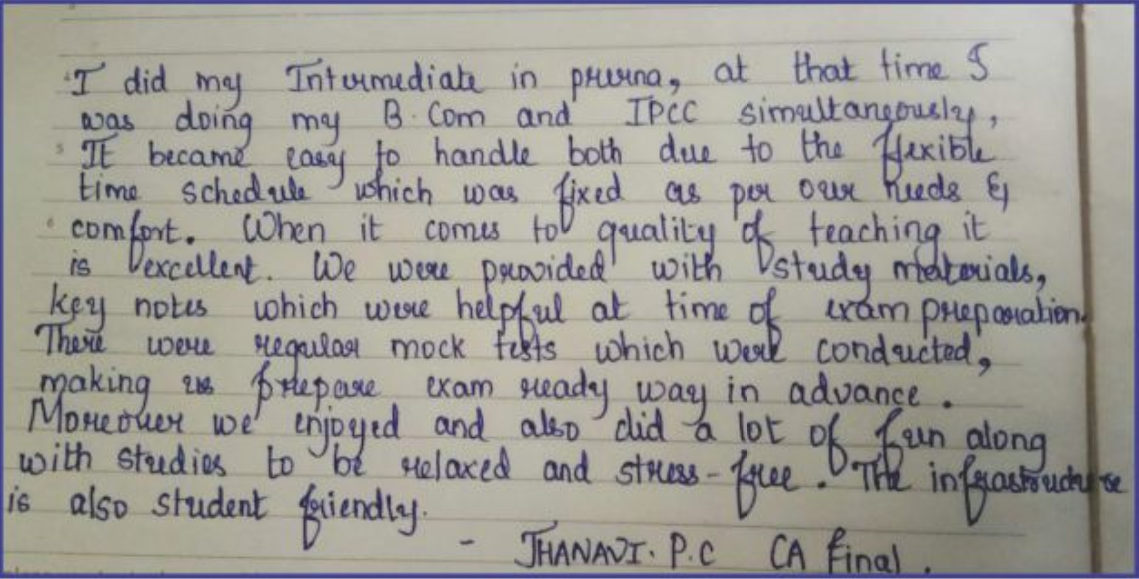 I did my Intermediate in prerna, at that time I
was doing my B.Com and IPCC simultaneously,
It became easy to handle both due to the flexible
time schedule which was fixed as per our needs &
comfort. When it comes to quality of teaching it
is excellent. We were provided with study materials,
key notes which were helpful at time of exam preparation.
There were regular mock tests which were conducted,
making us prepare exam ready way in advance.
Moreover we enjoyed and also did a lot of fun along
with studies to be relaxed and stress-free. The infrastructure
is also student friendly.
- JHANAVI. P.C CA Final.